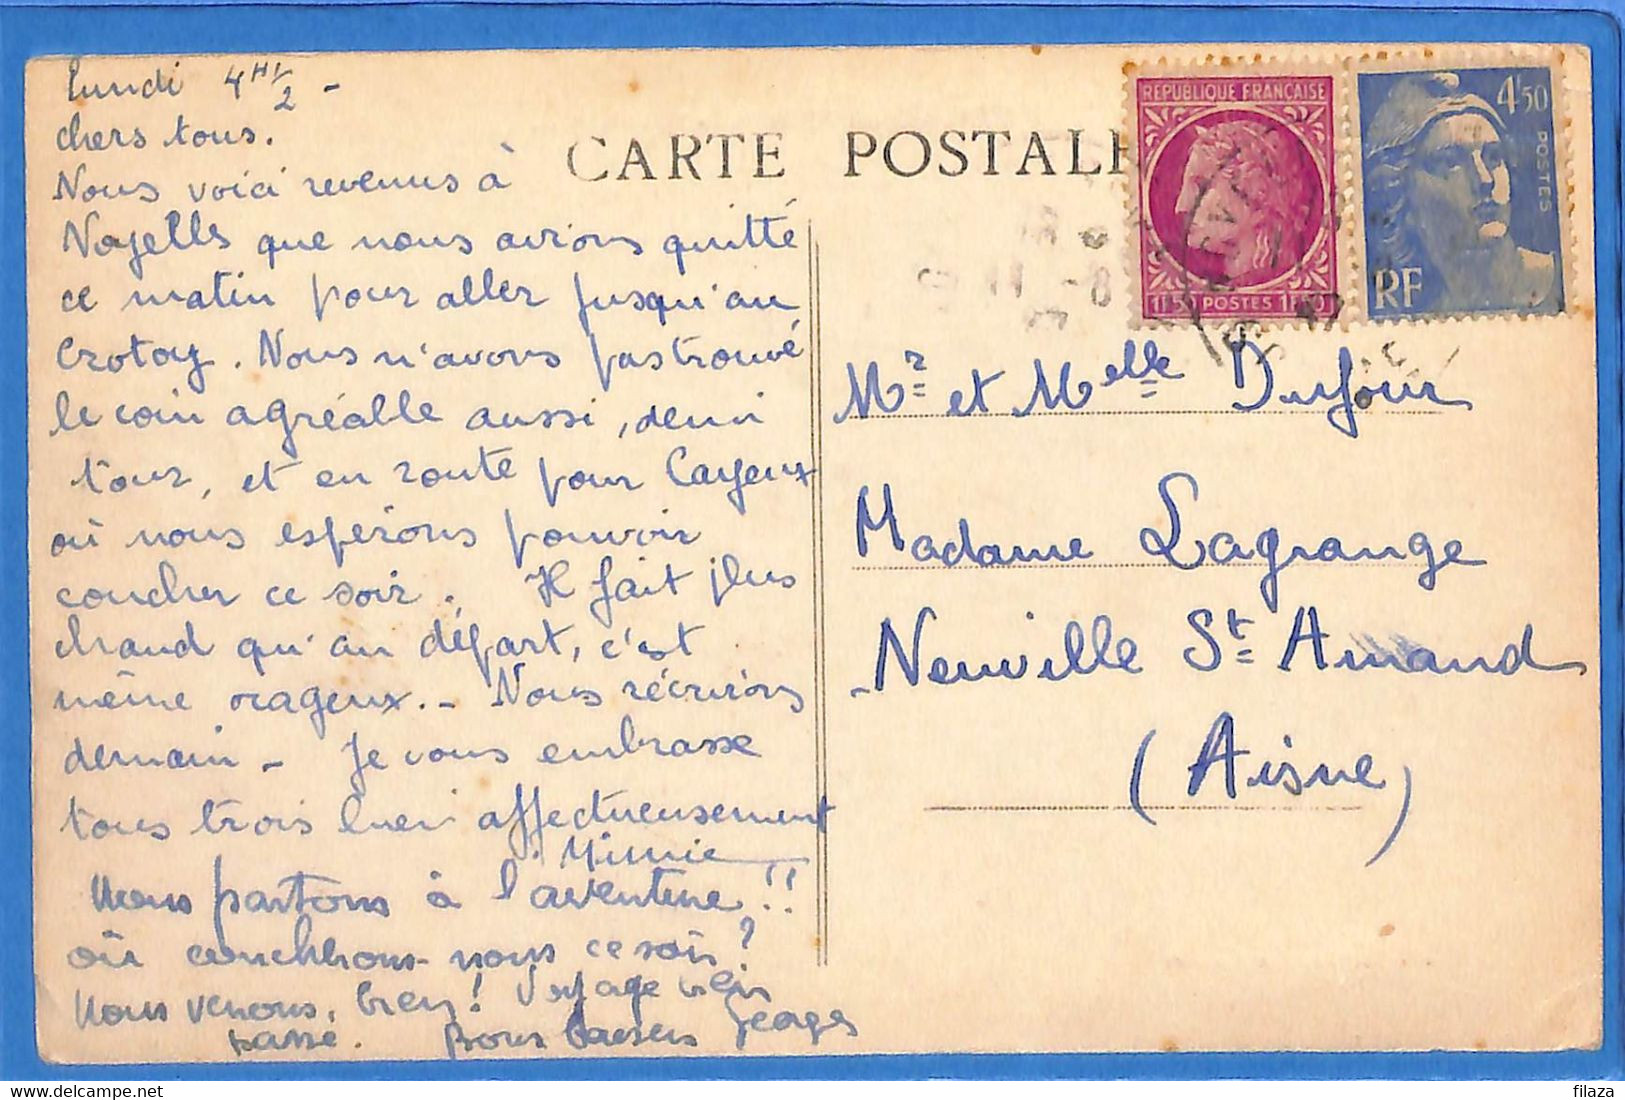 lundi 4 H 1/2 -
chers tous.
Nous voici revenus à
Noyelles que nous avions quitté
ce matin pour aller jusqu'au
Crotoy. Nous n'avons pas trouvé
le coin agréable aussi, demi
tour, et en route pour Cayeux
où nous espérons pouvoir
coucher ce soir. Il fait plus
chaud qu'au départ, c'est
même orageux. - Nous récrirons
demain - Je vous embrasse
tous trois bien affectueusement
Mimie
Nous partons à l'aventure !!
où coucherons-nous ce soir ?
Nous verrons, bien ! Voyage bien
passé. Bons baisers Georges
CARTE POSTALE
REPUBLIQUE FRANÇAISE
1F50 POSTES 1F50
4F50
POSTES
RF
Mr et Melle Dufour
Madame Lagrange
Neuville St Amand
(Aisne)
filaza